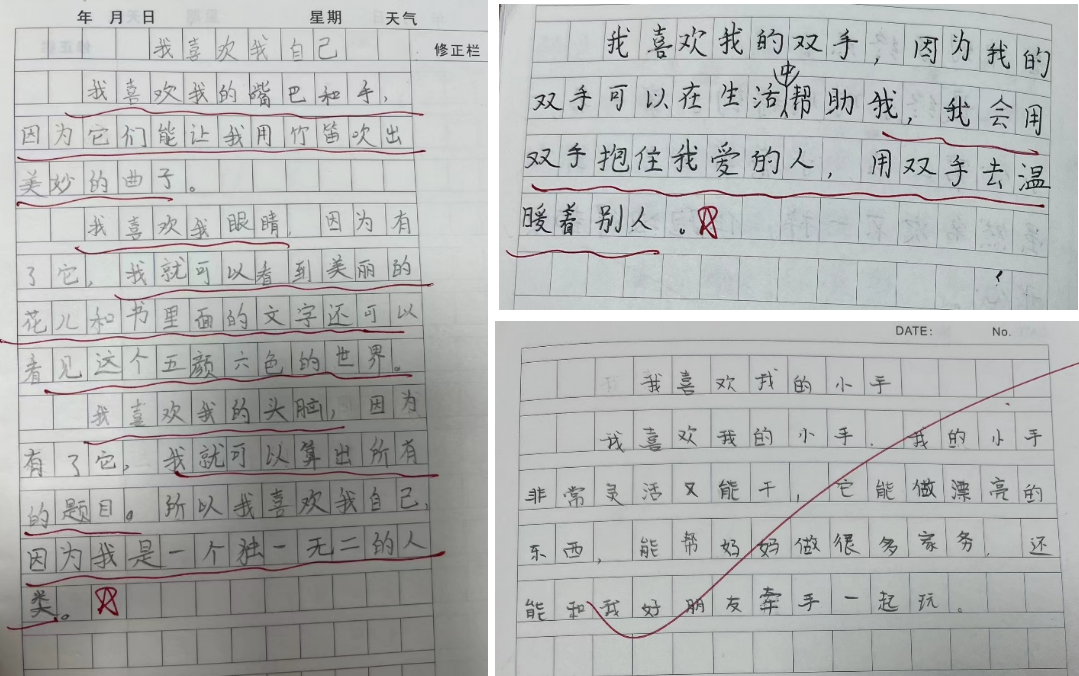 年 月 日 星期 天气
修正栏
我喜欢我自己
我喜欢我的嘴巴和手，
因为它们能让我用竹笛吹出
美妙的曲子。
我喜欢我眼睛，因为有
了它，我就可以看到美丽的
花儿和书里面的文字还可以
看见这个五颜六色的世界。
我喜欢我的头脑，因为
有了它，我就可以算出所有
的题目。所以我喜欢我自己，
因为我是一个独一无二的人
类。
我喜欢我的双手，因为我的
双手可以在生活中帮助我，我会用
双手抱住我爱的人，用双手去温
暖着别人。
DATE: No.
我喜欢我的小手
我喜欢我的小手．我的小手
非常灵活又能干，它能做漂亮的
东西，能帮妈妈做很多家务，还
能和我好朋友牵手一起玩。